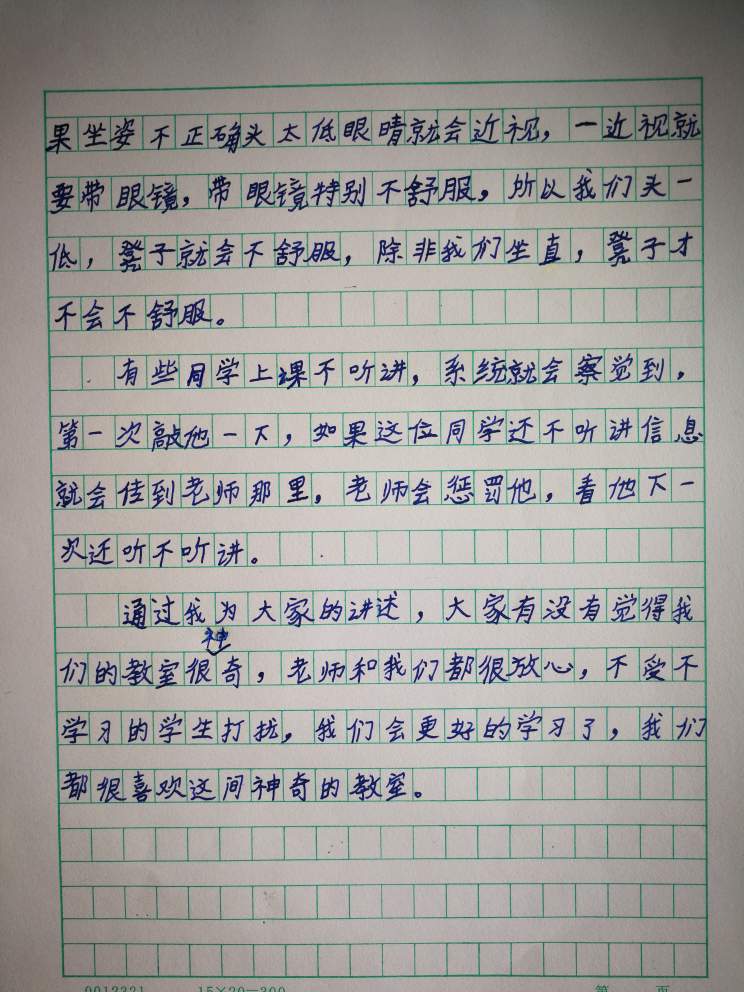 果坐姿不正确头太低眼睛就会近视，一近视就
要带眼镜，带眼镜特别不舒服，所以我们头一
低，凳子就会不舒服，除非我们坐直，凳子才
不会不舒服。
有些同学上课不听讲，系统就会察觉到，
第一次敲他一下，如果这位同学还不听讲信息
就会传到老师那里，老师会惩罚他，看他下一
次还听不听讲。
通过我为大家的讲述，大家有没有觉得我
们的教室很神奇，老师和我们都很放心，不受不
学习的学生打扰，我们会更好的学习了，我们
都很喜欢这间神奇的教室。
0012321 15×20=300 第 页